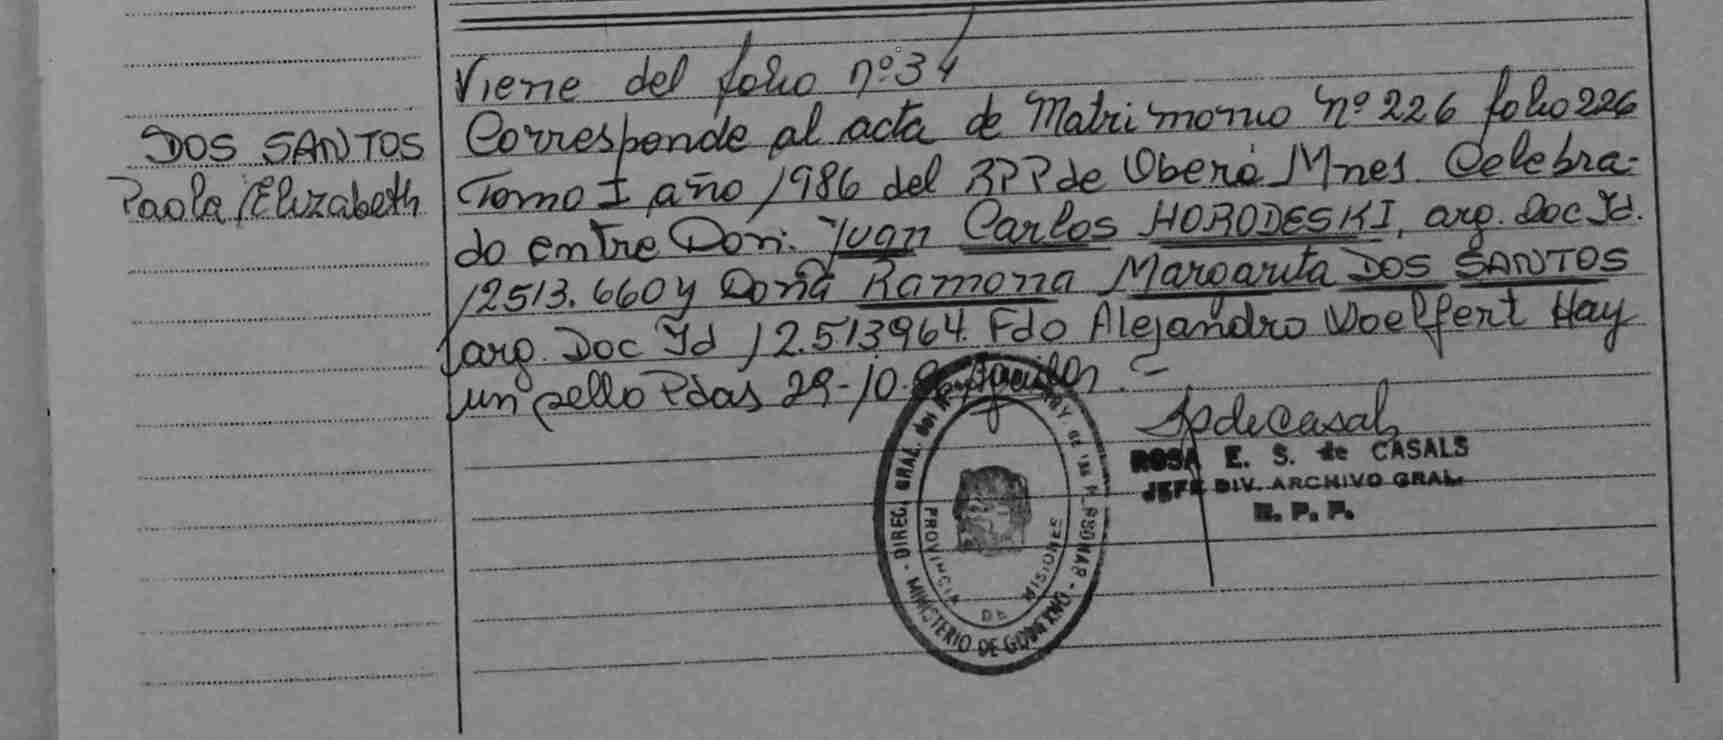 Viene del folio nº 34
DOS SANTOS
Paola Elizabeth
Corresponde al acta de Matrimonio nº 226 folio 226
Tomo I año 1986 del RPP de Oberá Mnes. Celebra-
do entre Don: Juan Carlos HORODESKI, arg. Doc Id.
12513.660 y Doña Ramona Margarita DOS SANTOS
arg. Doc Id 12.513964. Fdo Alejandro Woelfert Hay
un sello Pdas 29-10-
SdeCasals
ROSA E. S. de CASALS
JEFE DIV. ARCHIVO GRAL.
R. P. P.
DIREC. GRAL. del
MINISTERIO DE GOBIERNO
PROVINCIA DE MISIONES